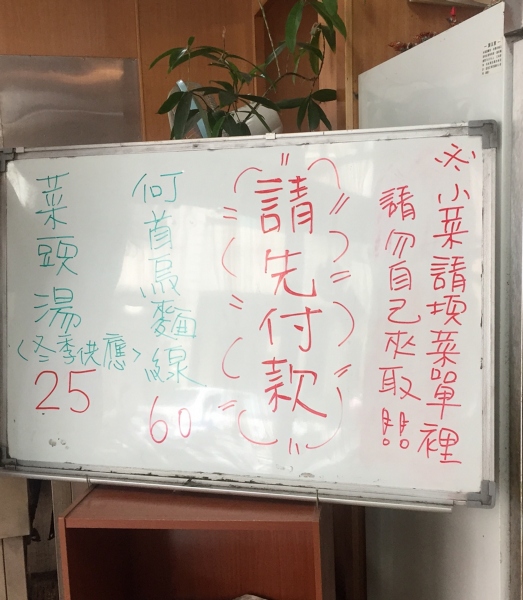 ※小菜請填菜單裡
請勿自己夾取!!
請先付款
何首烏麵線
60
菜頭湯
<冬季供應>
25